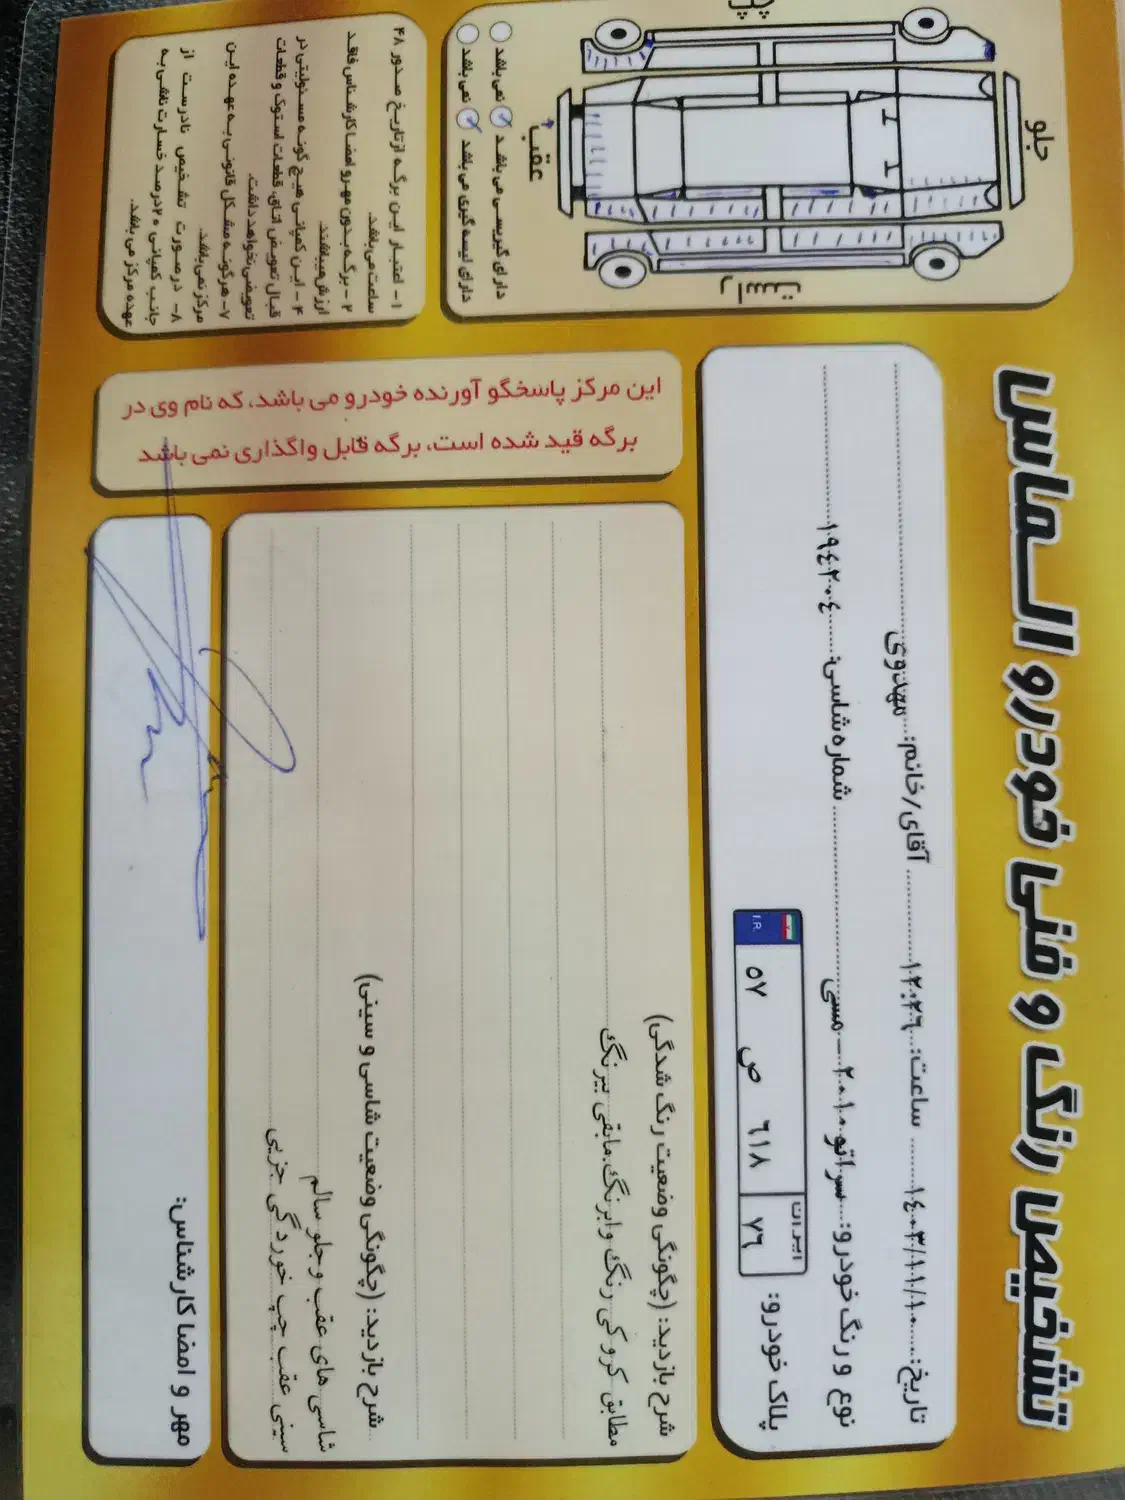 تشخیص رنگ و فنی خودرو الماس
تاریخ: ۱۴۰۳/۱۱/۱۰ ساعت: ۱۲:۲۶ آقای/خانم: مهدوی
نوع و رنگ خودرو: سراتو ۲۰۱۰ - مسی شماره شاسی: ۱۹۴۲۰۴
پلاک خودرو: ایران ۷۶ ۶۱۸ ص ۵۷ I.R.
شرح بازدید: (چگونگی وضعیت رنگ شدگی)
مطابق کروکی رنگ وابرنگ.مابقی بیرنگ
شرح بازدید: (چگونگی وضعیت شاسی و سینی)
شاسی های عقب و جلو سالم
سینی عقب چپ خوردگی جزیی
مهر و امضا کارشناس:
جلو
عقب
راست
چپ
دارای گیربسی می باشد نمی باشد
دارای لیسه گیری می باشد نمی باشد
۱- اعتبار این برگه از تاریخ صدور ۴۸
ساعت می‌باشد.
۲- برگه بدون مهر و امضا کارشناس فاقد
ارزش میباشند ۴- این کمپانی هیچ گونه مسئولیتی در
قبال تعویض اتاق، قطعات استوک و قطعات
تعویضی نخواهد داشت.
۷- هرگونه مشکل قانونی به عهده این
مرکز نمی‌باشد.
۸- درصورت تشخیص نادرست از
جانب کمپانی ۲۰درصد خسارت ناشی به
عهده مرکز می باشد.
این مرکز پاسخگو آورنده خودرو می باشد، که نام وی در
برگه قید شده است، برگه قابل واگذاری نمی باشد